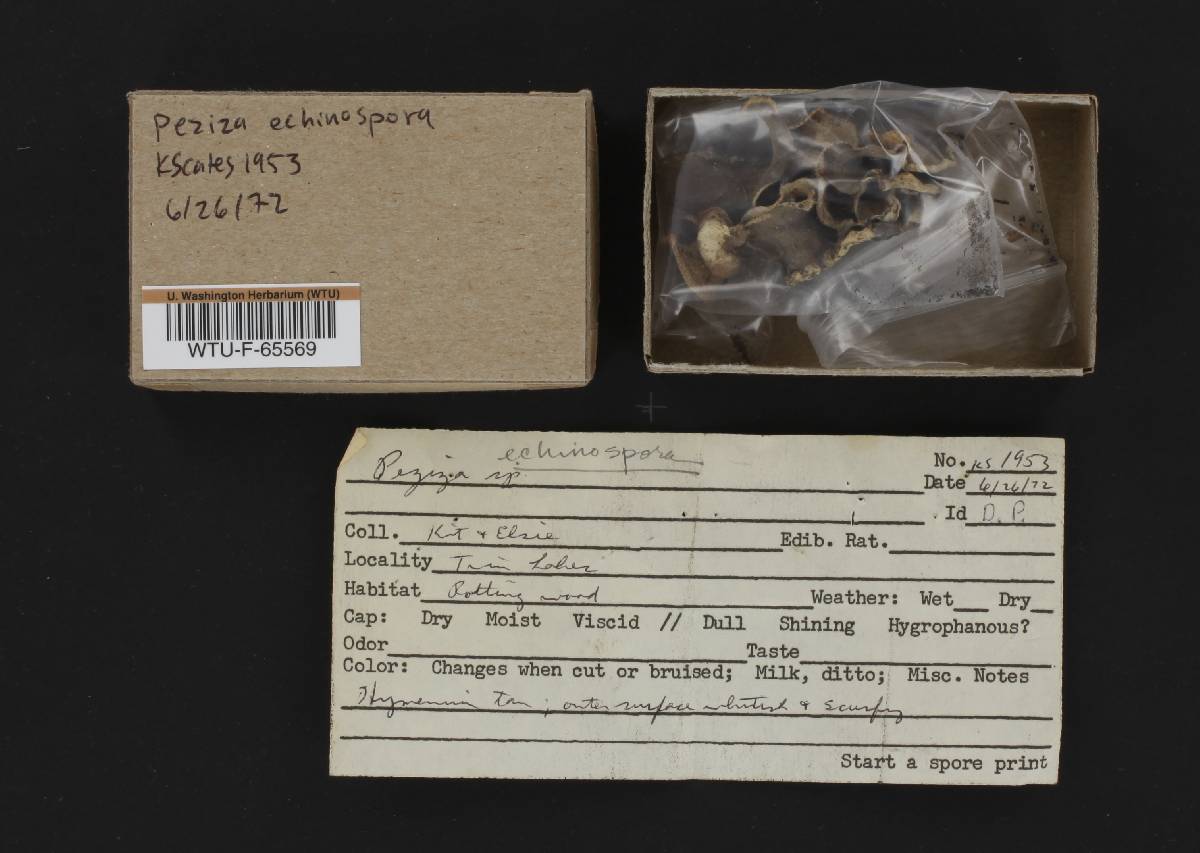 Peziza echinospora
KScates 1953
6/26/72
U. Washington Herbarium (WTU)
WTU-F-65569
echinospora
Peziza sp.
No. KS 1953
Date 6/26/72
Id D. P.
Coll. Kit & Elsie Edib. Rat.
Locality Twin Lakes
Habitat Rotting wood Weather: Wet Dry
Cap: Dry Moist Viscid // Dull Shining Hygrophanous?
Odor Taste
Color: Changes when cut or bruised; Milk, ditto; Misc. Notes
Hymenium tan; outer surface whitish & scurfy
Start a spore print